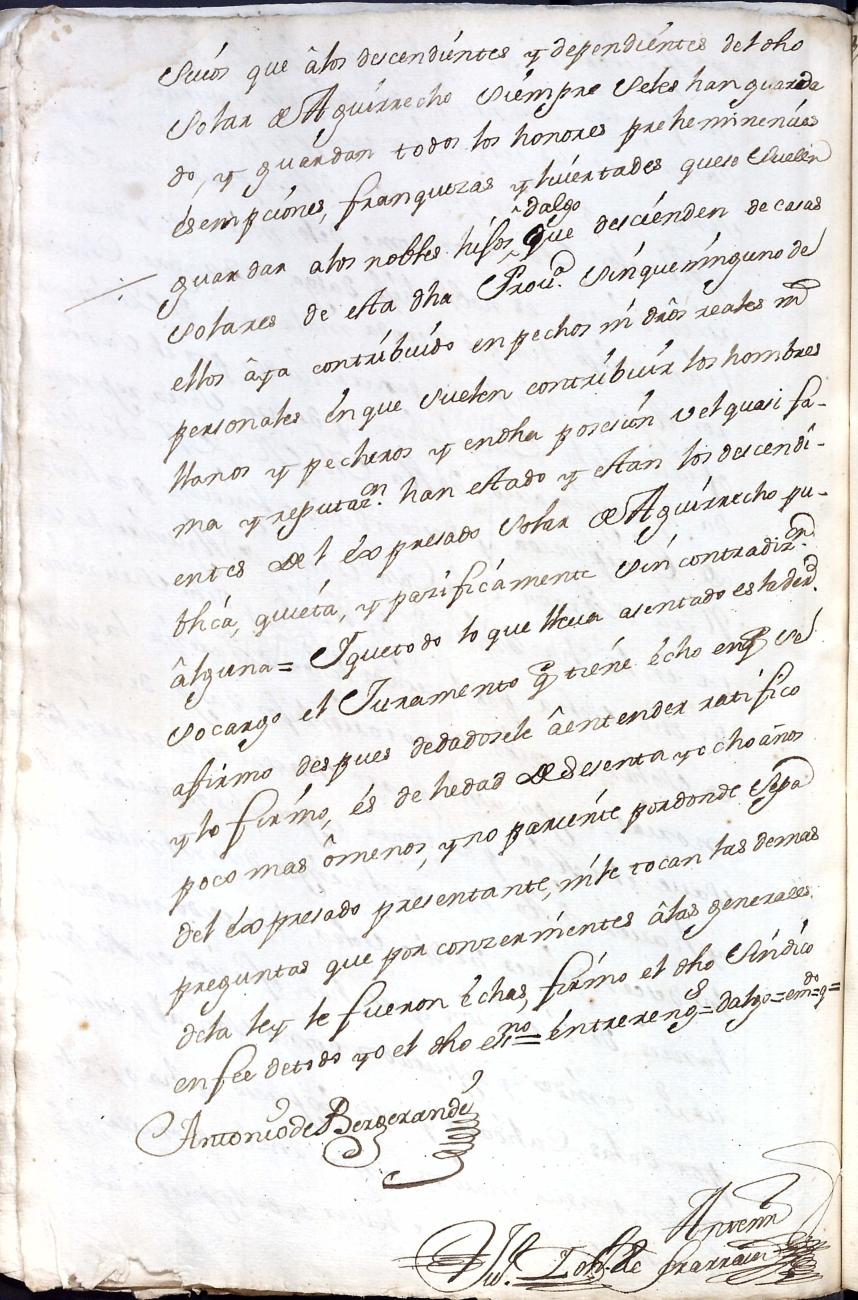 Suios que âlos descendientes y dependientes del dho
Solar de Aguirrecho siempre seles han guarda
do, y guardan todos los honores preheminencias
ésempciones, franquezas y livertades quese suelen
guardar alos nobles hijos ^dalgo que descienden de casas
solares de esta dha Prou.ª sinque ninguno de
ellos âya contribuido en pechos ni dr̂os reales ni
personales én que suelen contribuir los hombres
llanos y pecheros y endha posesion velquasi fa-
ma y reputaz.on han estado y estan los descendi-
entes del éxpresado solar de Aguirrecho pu-
blica, quieta, y pazificamente sin contradiz.n
âlguna= Yquetodo lo que lleva asentado es laverd.
socargo el Juramento q̃ tiene écho enq̃ se
afirmo despues dedadosele âentender ratifico
y lo firmo, és de hedad de sesenta y ocho años
poco mas ômenos, y no pariente pordonde sepa
del éxpresado presentante, nile tocan las demas
preguntas que por conzernientes âlas generales
dela ley le fueron échas, firmo el dho sindico
enfee detodo yo el dho esno= éntrereng.s=dalgo=emdo=q=
Antonio de Berroerande
Antemi